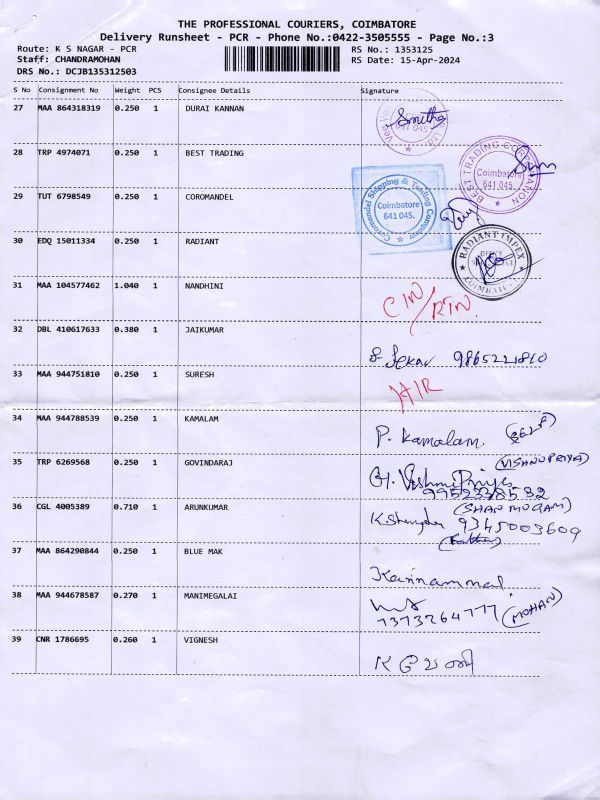 THE PROFESSIONAL COURIERS, COIMBATORE
Delivery Runsheet - PCR - Phone No.:0422-3505555 - Page No.:3
Route: K S NAGAR - PCR
RS No.: 1353125
Staff: CHANDRAMOHAN
RS Date: 15-Apr-2024
DRS No.: DCJB135312503
S No Consignment No Weight PCS Consignee Details Signature
27 MAA 864318319 0.250 1 DURAI KANNAN
641 045.
28 TRP 4974071 0.250 1 BEST TRADING
BEST TRADING CORPORATION Coimbatore 641 045.
29 TUT 6798549 0.250 1 COROMANDEL
Coromandel Shipping & Trading Company Coimbatore 641 045.
30 EDQ 15011334 0.250 1 RADIANT
RADIANT IMPEX COIMBATORE
31 MAA 104577462 1.040 1 NANDHINI
CIN/RTN.
32 DBL 410617633 0.380 1 JAIKUMAR
S. Sekar 9865221810
33 MAA 944751810 0.250 1 SURESH
AIR
34 MAA 944788539 0.250 1 KAMALAM
P. Kamalam. (SELF)
35 TRP 6269568 0.250 1 GOVINDARAJ
(VISHNUPRIYA)
G. VishnuPriya
9952338532
36 CGL 4005389 0.710 1 ARUNKUMAR
(SHANMUGAM)
9345003609
(Father)
37 MAA 864290844 0.250 1 BLUE MAK
Kannammal
38 MAA 944678587 0.270 1 MANIMEGALAI
7373264777 (MOHAN)
39 CNR 1786695 0.260 1 VIGNESH